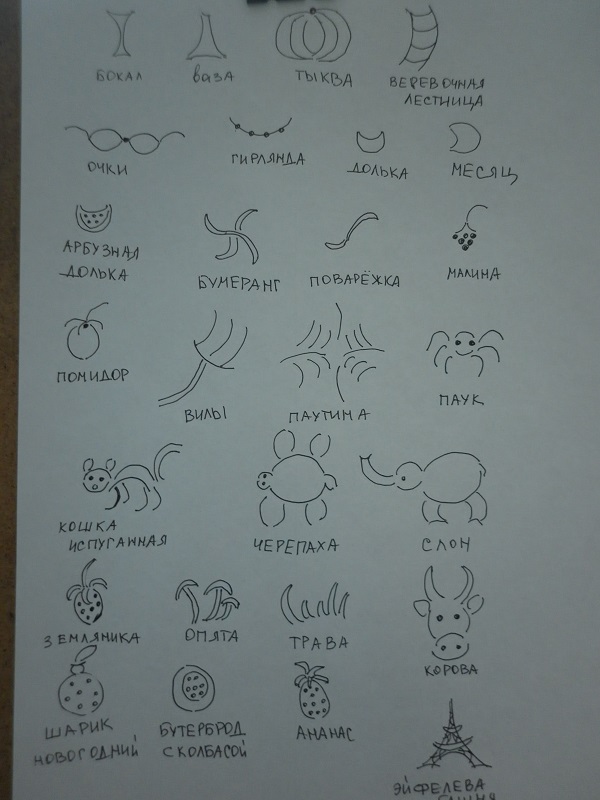 БОКАЛ
ваза
ТЫКВА
ВЕРЕВОЧНАЯ
ЛЕСТНИЦА
ОЧКИ
ГИРЛЯНДА
ДОЛЬКА
МЕСЯЦ
АРБУЗНАЯ
ДОЛЬКА
БУМЕРАНГ
ПОВАРЁЖКА
МАЛИНА
ПОМИДОР
ВИЛЫ
ПАУТИНА
ПАУК
КОШКА
ИСПУГАННАЯ
ЧЕРЕПАХА
СЛОН
ЗЕМЛЯНИКА
ОПЯТА
ТРАВА
КОРОВА
ШАРИК
НОВОГОДНИЙ
БУТЕРБРОД
С КОЛБАСОЙ
АНАНАС
ЭЙФЕЛЕВА
БАШНЯ